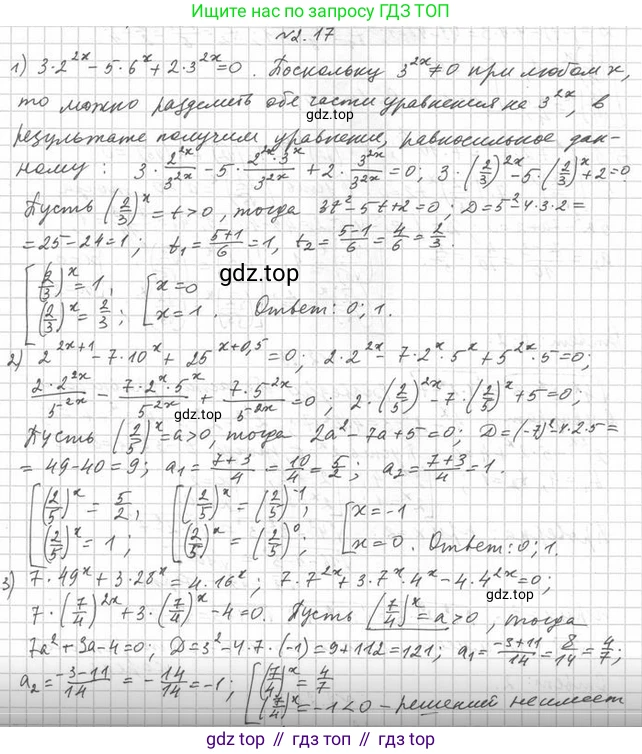 Ищите по запросу ГДЗ ТОП
№2.17
1) 3·2^{2x} - 5·6^x + 2·3^{2x} = 0. Поскольку 3^{2x} ≠ 0 при любом x,
то можно разделить обе части уравнения на 3^{2x}, в
результате получим уравнение, равносильное дан-
ному: 3·2^{2x}/3^{2x} - 5·2^x·3^x/3^{2x} + 2·3^{2x}/3^{2x} = 0, 3·(2/3)^{2x} - 5·(2/3)^x + 2 = 0.
Пусть (2/3)^x = t > 0, тогда 3t² - 5t + 2 = 0; D = 5² - 4·3·2 =
= 25 - 24 = 1; t₁ = (5+1)/6 = 1, t₂ = (5-1)/6 = 4/6 = 2/3.
[(2/3)^x = 1, [x = 0
gdz.top
(2/3)^x = 2/3; x = 1. Ответ: 0; 1.
2) 2^{2x+1} - 7·10^x + 25^{x+0,5} = 0; 2·2^{2x} - 7·2^x·5^x + 5^{2x}·5 = 0;
2·2^{2x}/5^{2x} - 7·2^x·5^x/5^{2x} + 7·5^{2x}/5^{2x} = 0; 2·(2/5)^{2x} - 7·(2/5)^x + 5 = 0;
gdz.top
Пусть (2/5)^x = a > 0, тогда 2a² - 7a + 5 = 0; D = (-7)² - 4·2·5 =
= 49 - 40 = 9; a₁ = (7+3)/4 = 10/4 = 5/2; a₂ = (7+3)/4 = 1.
[(2/5)^x = 5/2, [(2/5)^x = (2/5)^{-1}, [x = -1
(2/5)^x = 1; (2/5)^x = (2/5)^0; x = 0. Ответ: 0; 1.
gdz.top
3) 7·49^x + 3·28^x = 4·16^x; 7·7^{2x} + 3·7^x·4^x - 4·4^{2x} = 0;
7·(7/4)^{2x} + 3·(7/4)^x - 4 = 0. Пусть (7/4)^x = a > 0, тогда
7a² + 3a - 4 = 0; D = 3² - 4·7·(-1) = 9 + 112 = 121; a₁ = (-3+11)/14 = 8/14 = 4/7;
a₂ = (-3-11)/14 = -14/14 = -1; [(7/4)^x = 4/7
(7/4)^x = -1 < 0 - решений не имеет
gdz.top // gdz.top // gdz.top